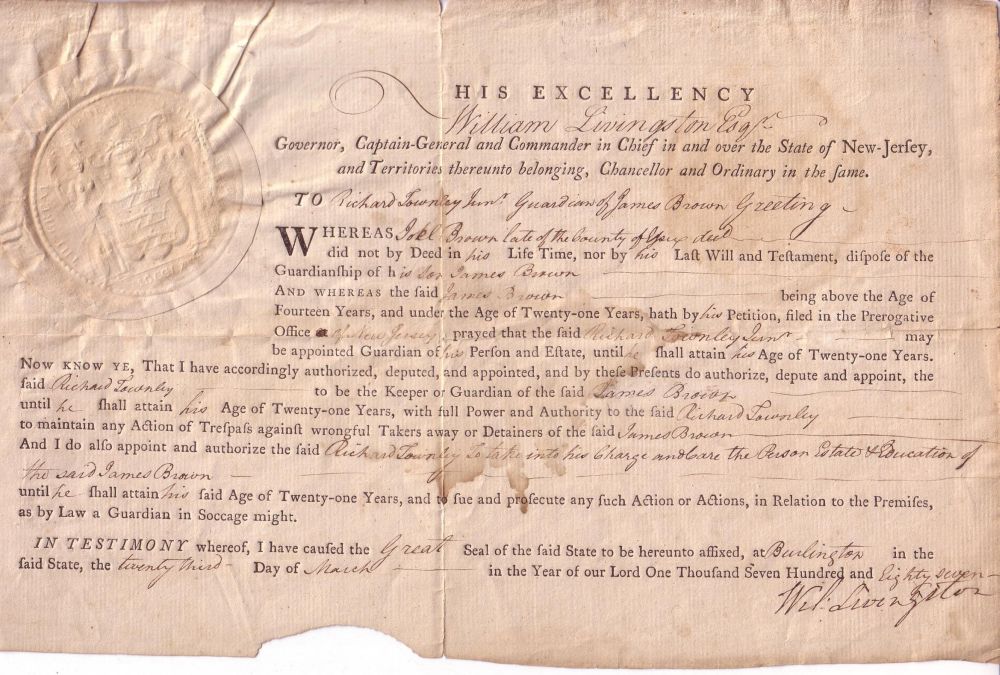 HIS EXCELLENCY
William Livingston Esqr.
Governor, Captain-General and Commander in Chief in and over the State of New-Jersey,
and Territories thereunto belonging, Chancellor and Ordinary in the ſame.
TO Richard Townley Junr. Guardian of James Brown Greeting
WHEREAS Joel Brown late of the County of Essex decd
did not by Deed in his Life Time, nor by his Laſt Will and Teſtament, diſpoſe of the
Guardianſhip of his Son James Brown
AND WHEREAS the ſaid James Brown being above the Age of
Fourteen Years, and under the Age of Twenty-one Years, hath by his Petition, filed in the Prerogative
Office of New Jersey, prayed that the ſaid Richard Townley Junr. may
be appointed Guardian of his Perſon and Eſtate, until he ſhall attain his Age of Twenty-one Years.
NOW KNOW YE, That I have accordingly authorized, deputed, and appointed, and by theſe Preſents do authorize, depute and appoint, the
ſaid Richard Townley to be the Keeper or Guardian of the ſaid James Brown
until he ſhall attain his Age of Twenty-one Years, with full Power and Authority to the ſaid Richard Townley
to maintain any Action of Treſpaſs againſt wrongful Takers away or Detainers of the ſaid James Brown
And I do alſo appoint and authorize the ſaid Richard Townley To take into his Charge and Care the Person Estate & Education of
the said James Brown
until he ſhall attain his ſaid Age of Twenty-one Years, and to ſue and proſecute any ſuch Action or Actions, in Relation to the Premiſes,
as by Law a Guardian in Soccage might.
IN TESTIMONY whereof, I have cauſed the Great Seal of the ſaid State to be hereunto affixed, at Burlington in the
ſaid State, the twenty third Day of March in the Year of our Lord One Thouſand Seven Hundred and Eighty seven
Wil: Livingston